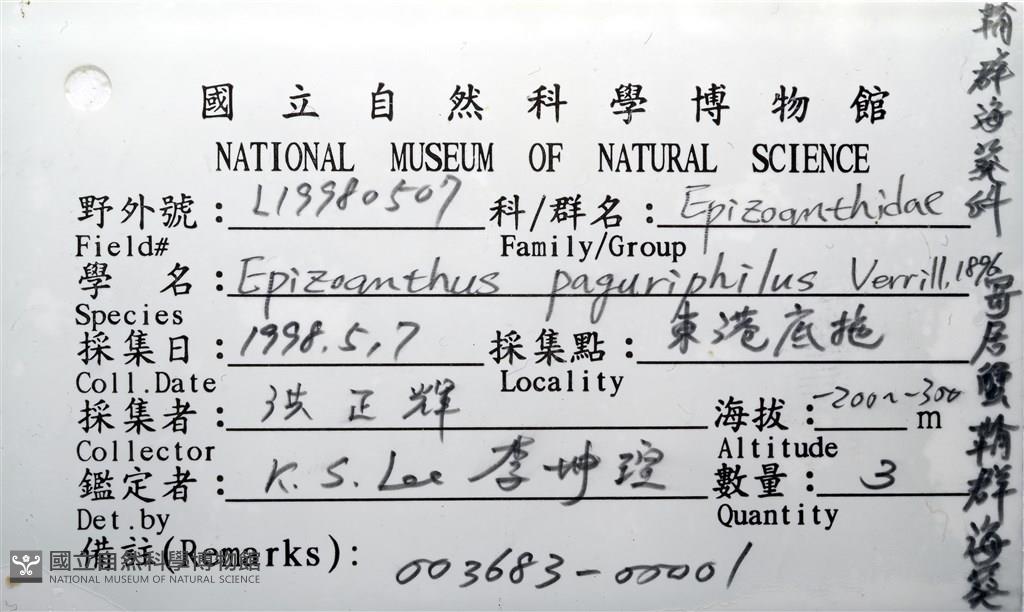 國立自然科學博物館
NATIONAL MUSEUM OF NATURAL SCIENCE
野外號：L19980507 科/群名：Epizoanthidae
Field# Family/Group
學 名：Epizoanthus paguriphilus Verrill, 1896
Species
採集日：1998.5,7 採集點：東港底拖
Coll.Date Locality
採集者：洪正輝 海拔：-200~-300 m
Collector Altitude
鑑定者：K. S. Lee 李坤瑄 數量：3
Det.by Quantity
備註(Remarks)： 003683-00001
國立自然科學博物館
NATIONAL MUSEUM OF NATURAL SCIENCE
翰群海葵科 寄居蟹翰群海葵